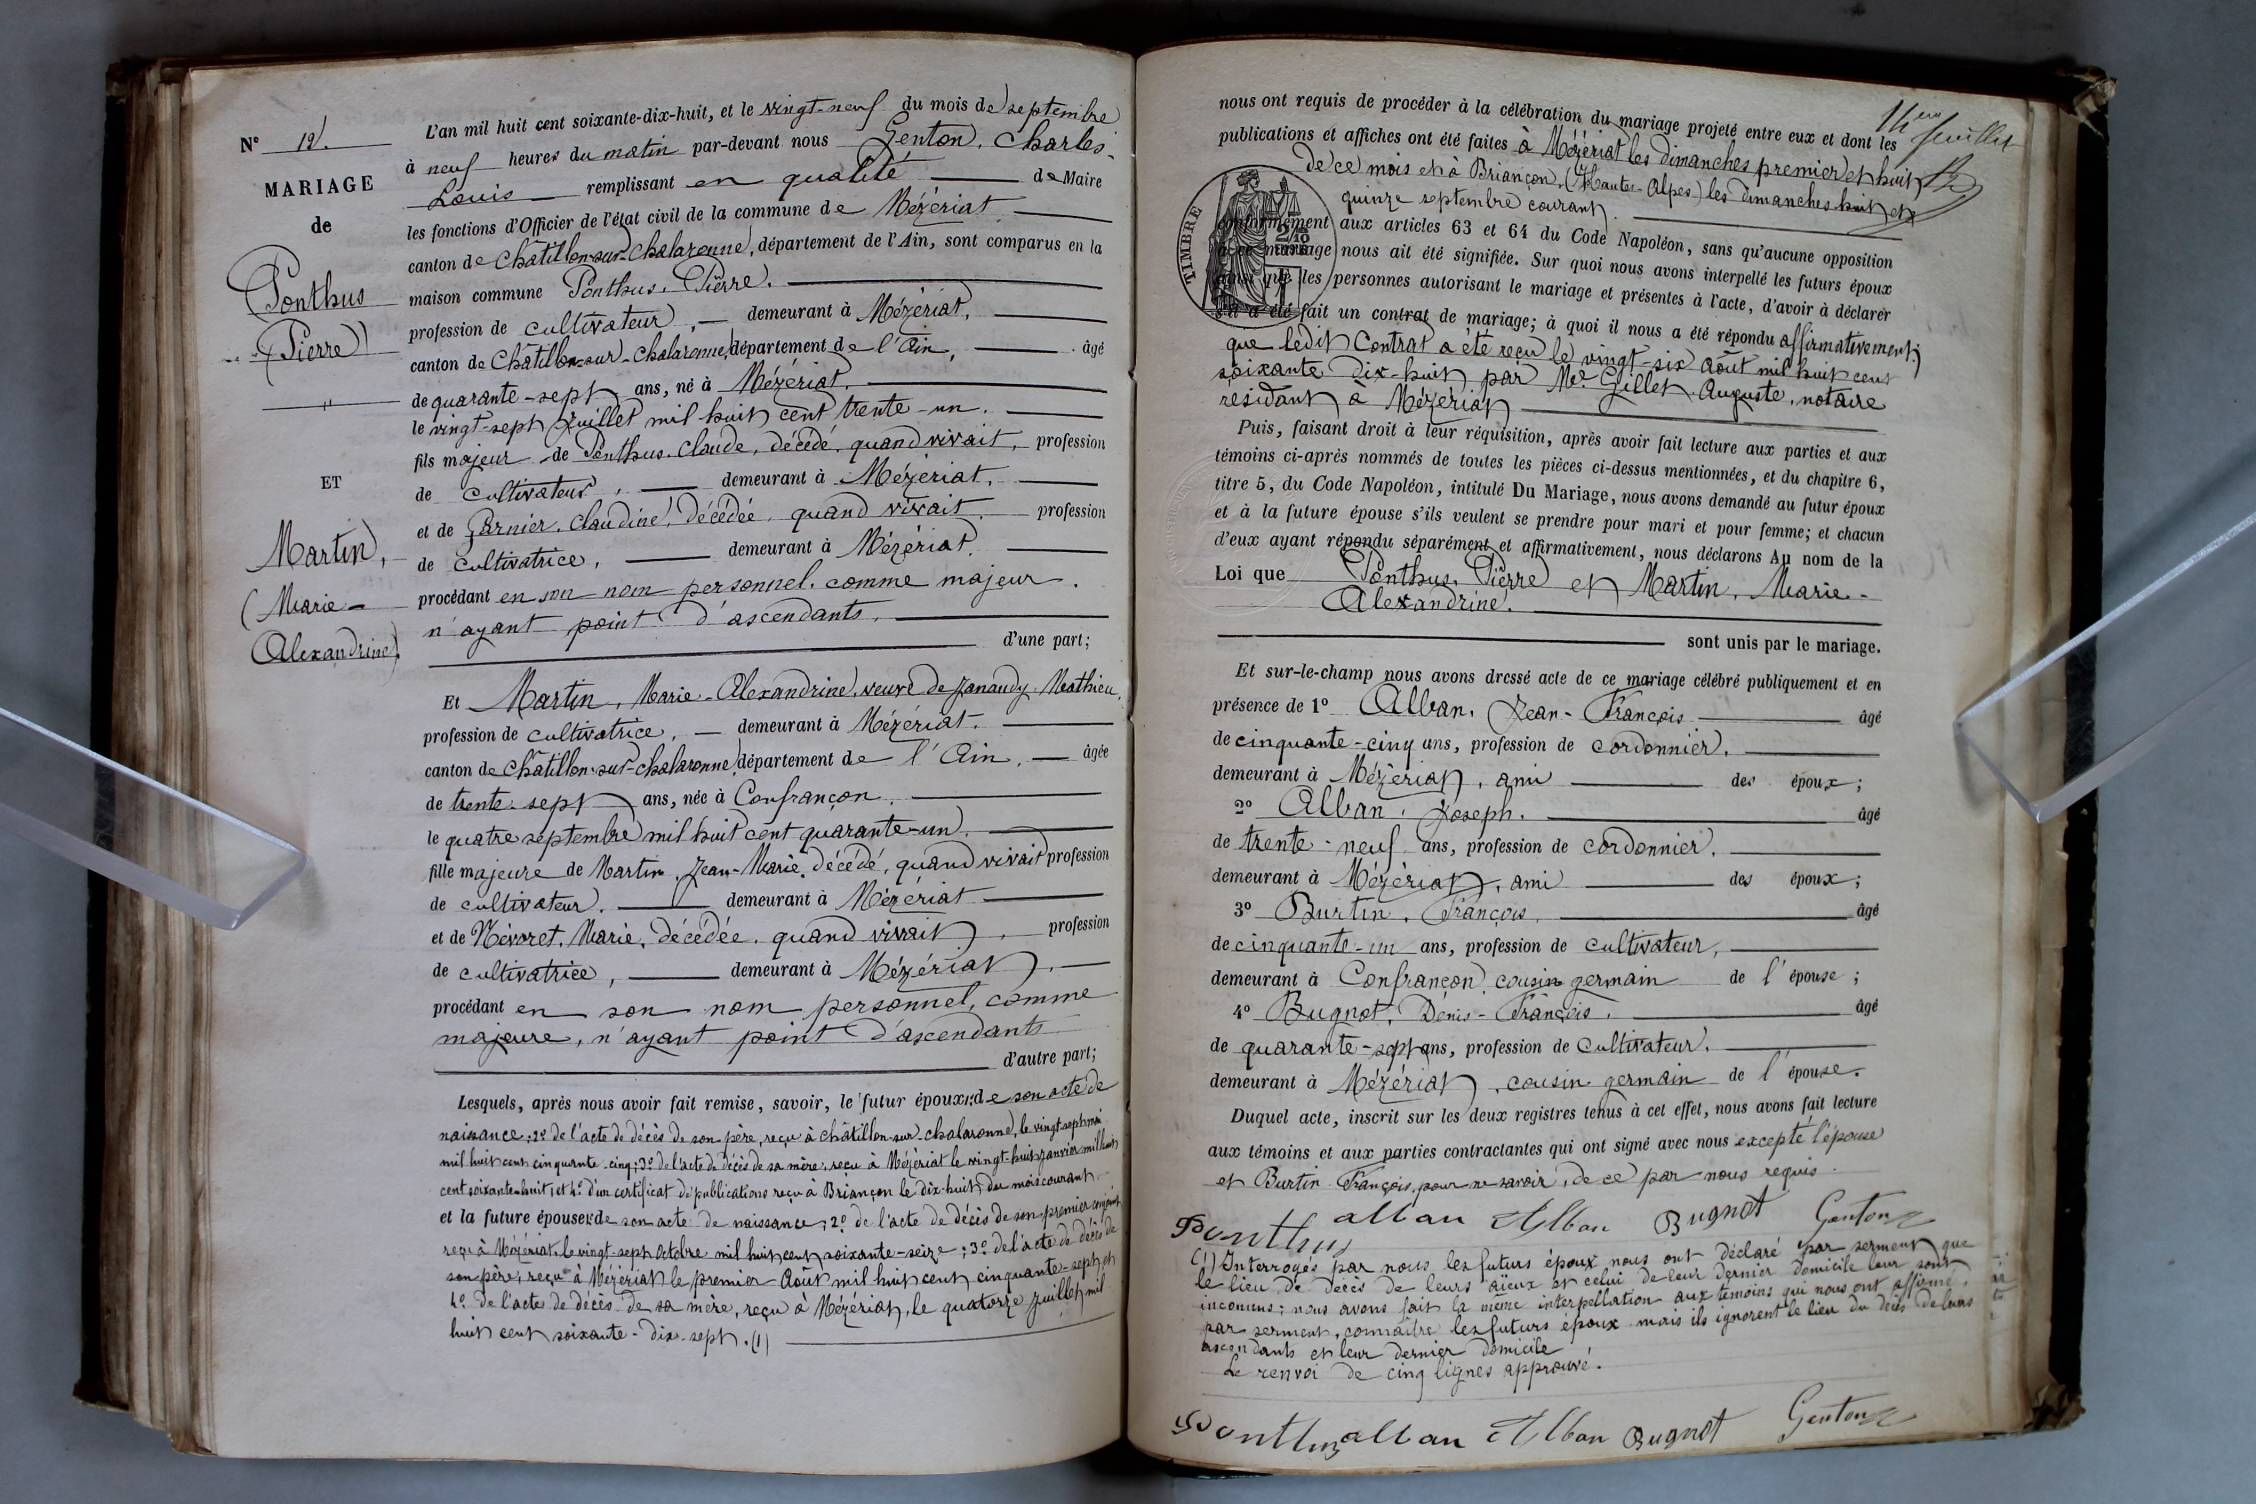 N° 12.
MARIAGE
de
Ponthus
(Pierre)
ET
Martin,
(Marie-
Alexandrine)
L'an mil huit cent soixante-dix-huit, et le vingt-neuf du mois de septembre
à neuf heures du matin par-devant nous Genton, Charles-
Louis remplissant en qualité de Maire
les fonctions d'Officier de l'état civil de la commune de Mézériat
canton de Châtillon-sur-Chalaronne, département de l'Ain, sont comparus en la
maison commune Ponthus, Pierre.
profession de cultivateur, demeurant à Mézériat,
canton de Châtillon-sur-Chalaronne, département de l'Ain, âgé
de quarante-sept ans, né à Mézériat,
le vingt-sept Juillet mil huit cent trente-un.
fils majeur de Ponthus, Claude, décédé, quand vivait, profession
de cultivateur, demeurant à Mézériat,
et de Garnier, Claudine, décédée, quand vivait, profession
de cultivatrice, demeurant à Mézériat.
procédant en son nom personnel, comme majeur.
n'ayant point d'ascendants,
d'une part;
Et Martin, Marie-Alexandrine, veuve de Janaudy Mathieu,
profession de cultivatrice, demeurant à Mézériat.
canton de Châtillon-sur-Chalaronne, département de l'Ain, âgée
de trente-sept ans, née à Confrançon,
le quatre septembre mil huit cent quarante-un,
fille majeure de Martin, Jean-Marie, décédé, quand vivait profession
de cultivateur, demeurant à Mézériat
et de Névoret, Marie, décédée, quand vivait, profession
de cultivatrice, demeurant à Mézériat,
procédant en son nom personnel, comme
majeure, n'ayant point d'ascendants
d'autre part;
Lesquels, après nous avoir fait remise, savoir, le futur époux: de son acte de
naissance; 2° de l'acte de décès de son père, reçu à Châtillon-sur-Chalaronne, le vingt-sept mai
mil huit cent cinquante-cinq; 3° de l'acte de décès de sa mère, reçu à Mézériat le vingt-huit janvier mil huit
cent soixante-huit; et 4° d'un certificat de publications reçu à Briançon le dix-huit du mois courant
et la future épouse: de son acte de naissance; 2° de l'acte de décès de son premier conjoint
reçu à Mézériat, le vingt-sept octobre mil huit cent soixante-seize; 3° de l'acte de décès de
son père, reçu à Mézériat le premier Août mil huit cent cinquante-sept et
4° de l'acte de décès de sa mère, reçu à Mézériat, le quatorze juillet mil
huit cent soixante-dix-sept. (1)
14em
feuillet
nous ont requis de procéder à la célébration du mariage projeté entre eux et dont les
publications et affiches ont été faites à Mézériat les dimanches premier et huit
de ce mois et à Briançon, (Hautes-Alpes) les dimanches huit et
quinze septembre courant.
TIMBRE
conformément aux articles 63 et 64 du Code Napoléon, sans qu'aucune opposition
à ce mariage nous ait été signifiée. Sur quoi nous avons interpellé les futurs époux
ainsi que les personnes autorisant le mariage et présentes à l'acte, d'avoir à déclarer
s'il a été fait un contrat de mariage; à quoi il nous a été répondu affirmativement;
que ledit Contrat a été reçu le vingt-six Août mil huit cent
soixante dix-huit par Me Gillet Auguste, notaire
résidant à Mézériat
Puis, faisant droit à leur réquisition, après avoir fait lecture aux parties et aux
témoins ci-après nommés de toutes les pièces ci-dessus mentionnées, et du chapitre 6,
titre 5, du Code Napoléon, intitulé Du Mariage, nous avons demandé au futur époux
et à la future épouse s'ils veulent se prendre pour mari et pour femme; et chacun
d'eux ayant répondu séparément et affirmativement, nous déclarons Au nom de la
Loi que Ponthus, Pierre et Martin, Marie-
Alexandrine.
sont unis par le mariage.
Et sur-le-champ nous avons dressé acte de ce mariage célébré publiquement et en
présence de 1° Alban, Jean-François âgé
de cinquante-cinq ans, profession de cordonnier,
demeurant à Mézériat, ami des époux;
2° Alban, Joseph. âgé
de trente-neuf ans, profession de cordonnier,
demeurant à Mézériat, ami des époux;
3° Burtin, François, âgé
de cinquante-un ans, profession de cultivateur,
demeurant à Confrançon, cousin germain de l'épouse;
4° Bugnot, Denis-François, âgé
de quarante-sept ans, profession de cultivateur.
demeurant à Mézériat, cousin germain de l'épouse.
Duquel acte, inscrit sur les deux registres tenus à cet effet, nous avons fait lecture
aux témoins et aux parties contractantes qui ont signé avec nous excepté l'épouse
et Burtin François, pour ne savoir, de ce par nous requis.
Ponthus alban Alban Bugnot Genton
(1) Interrogés par nous, les futurs époux nous ont déclaré par serment que
le lieu de décès de leurs aïeux et celui de leur dernier domicile leur sont
inconnus; nous avons fait la même interpellation aux témoins qui nous ont affirmé,
par serment, connaître les futurs époux mais ils ignorent le lieu du décès de leurs
ascendants et leur dernier domicile
Le renvoi de cinq lignes approuvé.
Ponthus alban Alban Bugnot Genton